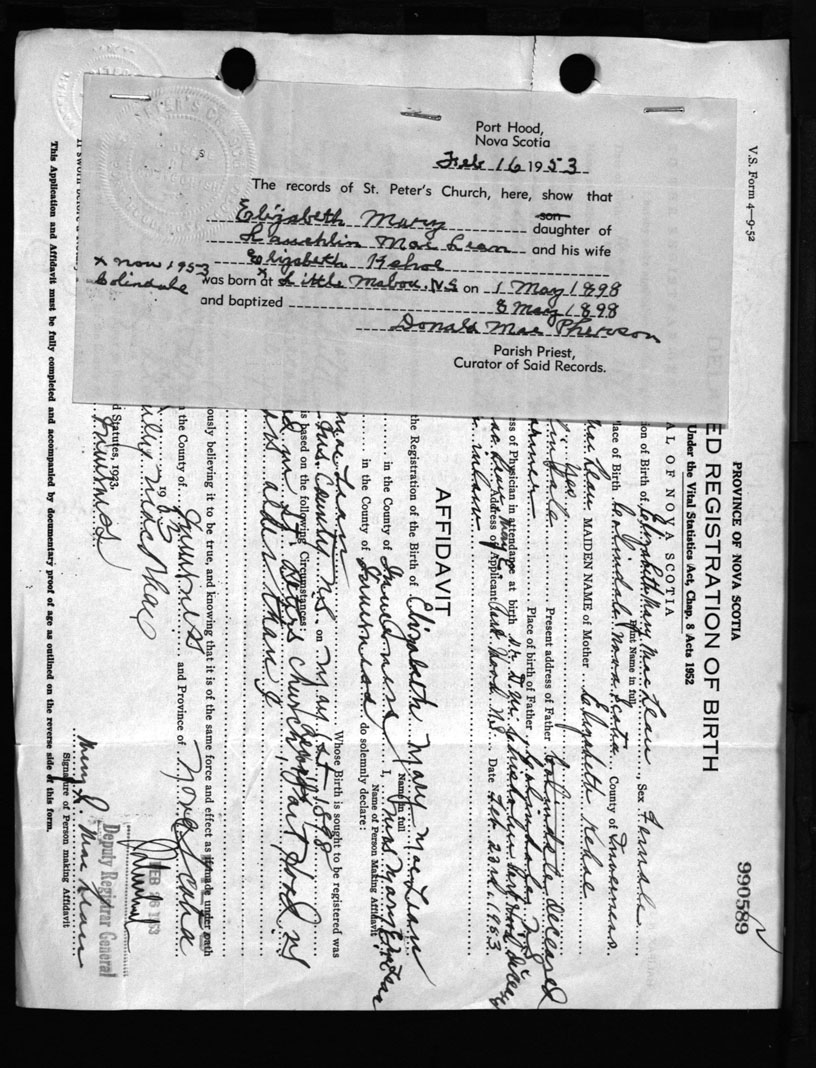 Port Hood,
Nova Scotia
Feb 16 1953
The records of St. Peter's Church, here, show that
Elizabeth Mary son daughter of
Lauchlin Mac Lean and his wife
Elizabeth Kehoe
x now 1953
Colindale
was born at x Little Mabou, N.S on 1 May 1898
and baptized 8 May 1898
Donald Mac Pherson
Parish Priest,
Curator of Said Records.
V.S. Form 4—9-52
990589
PROVINCE OF NOVA SCOTIA
ED REGISTRATION OF BIRTH
Under the Vital Statistics Act, Chap. 8 Acts 1952
AL OF NOVA SCOTIA
ion of Birth of Elizabeth Mary MacLean, Sex Female
Print Name in full
lace of Birth Colindale Nova Scotia County of Inverness
MacLean MAIDEN NAME of Mother Elizabeth Kehoe
Present address of Father Colindale deceased
armer Place of birth of Father
ess of Physician in attendance at birth
Address of Applicant Port Hood N.S. Date Feb. 23rd. 1953
AFFIDAVIT
the Registration of the Birth of Elizabeth Mary MacLean
Name in full
in the County of Inverness I, Miss Mary
Name of Person Making Affidavit
in the County of Inverness do solemnly declare:
Whose Birth is sought to be registered was
MacLean
Inv. County N.S. on May 1st 1898
is based on the following Circumstances:
in St. Peter's Church, Port Hood NS
other than
iously believing it to be true, and knowing that it is of the same force and effect as if made under oath
n the County of Inverness and Province of Nova Scotia
1953
d Statutes, 1923.
Inverness
FEB 26 1953
Deputy Registrar General
Mary E. MacLean
Signature of Person making Affidavit
If sworn before a Notary
This Application and Affidavit must be fully completed and accompanied by documentary proof of age as outlined on the reverse side of this form.